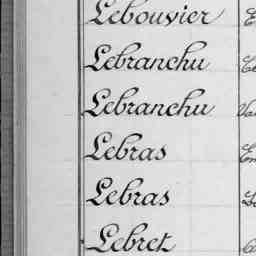 Lebouvier
Lebranchu
Lebranchu
Lebras
Lebras
Lebret